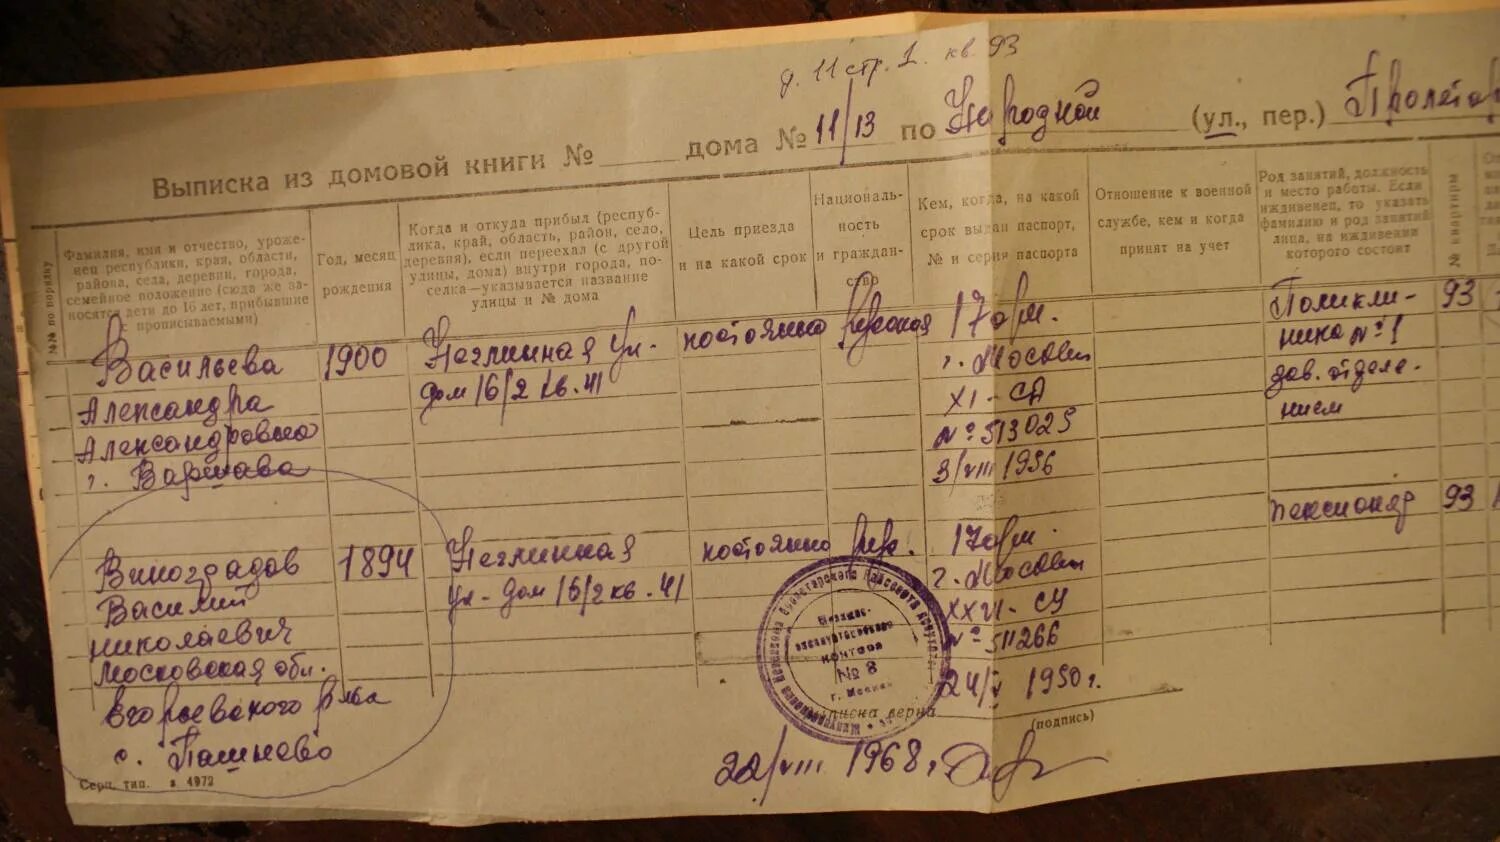 д. 11 стр. 1. кв. 93
Выписка из домовой книги № дома № 11/13 по Народной (ул., пер.) Пролетар
№№ по порядку
Фамилия, имя и отчество, уроже-
нец республики, края, области,
района, села, деревни, города,
семейное положение (сюда же за-
носятся дети до 16 лет, прибывшие
с прописываемыми)
Год, месяц
рождения
Когда и откуда прибыл (респуб-
лика, край, область, район, село,
деревня), если переехал (с другой
улицы, дома) внутри города, по-
селка—указывается название
улицы и № дома
Цель приезда
и на какой срок
Националь-
ность
и граждан-
ство
Кем, когда, на какой
срок выдан паспорт,
№ и серия паспорта
Отношение к военной
службе, кем и когда
принят на учет
Род занятий, должность
и место работы. Если
иждивенец, то указать
фамилию и род занятий
лица, на иждивении
которого состоит
№ квартиры
Васильева 1900 Неглинная ул. постоянно русская 17 о/м. Поликли- 93
Александра дом 16/2 кв. 41 г. Москвы ника № 1
Александровна XI-СА зав. отделе-
г. Варшава № 513025 нием
3/VIII 1956
Виноградов 1894 Неглинная постоянно рус. 17 о/м. пенсионер 93
Василий ул. дом 16/2 кв. 41 г. Москвы
Николаевич XXVI-СУ
Московская обл. № 511266
Егорьевского р-на 24/V 1950 г.
с. Пашнево
контора
№ 8
г. Москва
Выписка верна
(подпись)
22/VIII 1968 г.
Серп. тип. з 4972